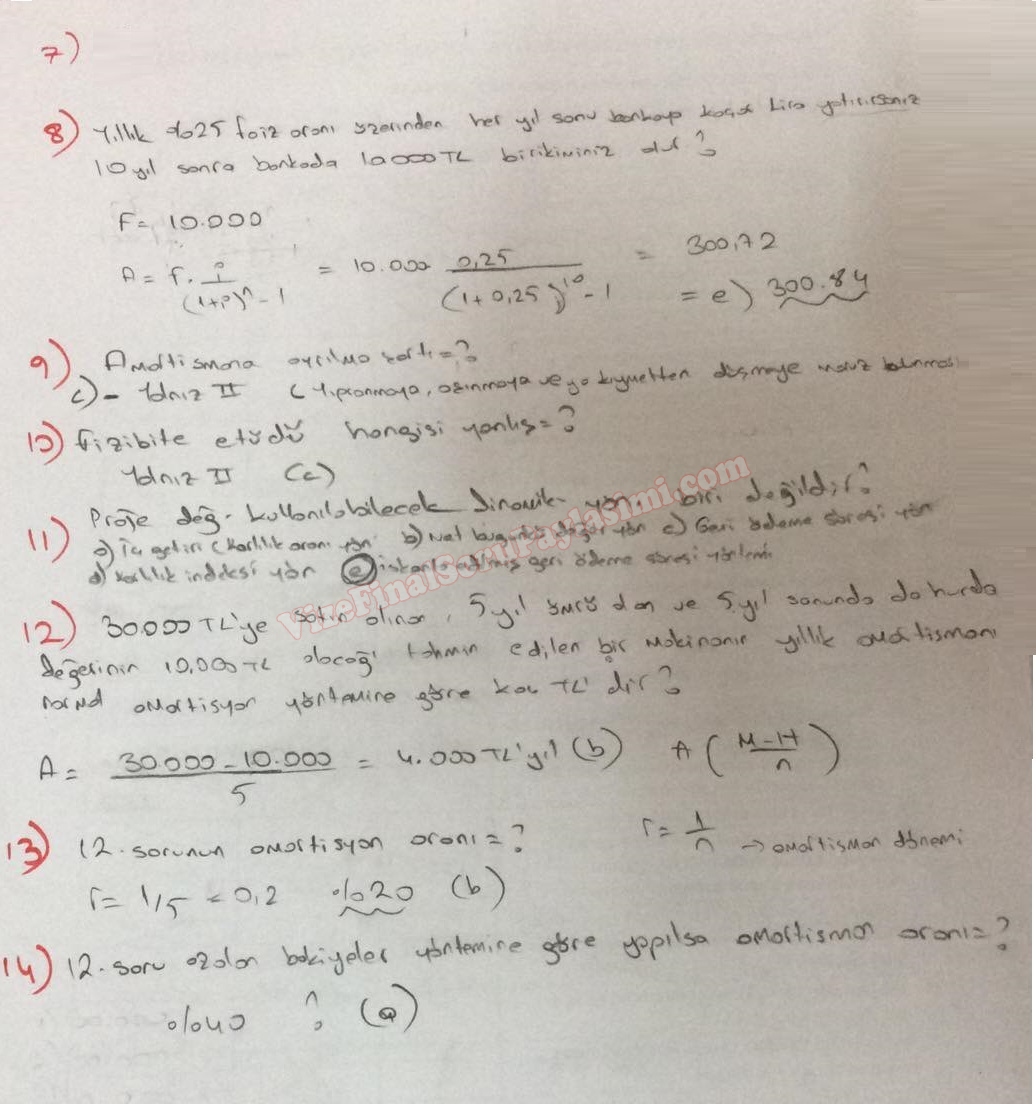 7)
8) Yıllık %25 faiz oranı üzerinden her yıl sonu bankaya kaçar Lira yatırırsanız
10 yıl sonra bankada 10000 TL birikiminiz olur?
F= 10.000
A = f. i / (1+i)^n - 1 = 10.000 0,25 / (1+0,25)^10 - 1 = 300,72
= e) 300.84
9) Amortismana ayrılma şartı=?
c) - Yalnız II ( Yıpranmaya, aşınmaya veya kıymetten düşmeye maruz bulunması
10) fizibite etüdü hangisi yanlış=?
Yalnız II (c)
11) Proje değ. kullanılabilecek dinamik yön. biri değildir?
a) İç getiri (karlılık oranı yön b) Net bugünkü değer yön c) Geri ödeme süresi yön
d) Karlılık indeksi yön e) iskonto edilmiş geri ödeme süresi yöntemi
VizeFinalSoruPaylasimi.com
12) 30.000 TL'ye satın alınan, 5 yıl ömrü olan ve 5 yıl sonunda da hurda
değerinin 10,000 TL olacağı tahmin edilen bir makinanın yıllık amortismanı
normal amortisyon yöntemine göre kaç TL' dir?
A = 30.000 - 10.000 / 5 = 4.000 TL'yıl (b) A ( M-H / n )
13) 12. sorunun amortisyon oranı=? r = 1/n → amortisman dönemi
r= 1/5 = 0,2 %20 (b)
14) 12. soru azalan bakiyeler yöntemine göre yapılsa amortisman oranı=?
%40 ? (a)